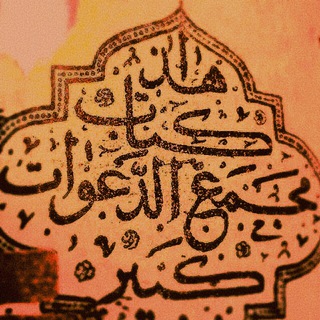 هذا
كتاب
مجمع الدعوات
كبير